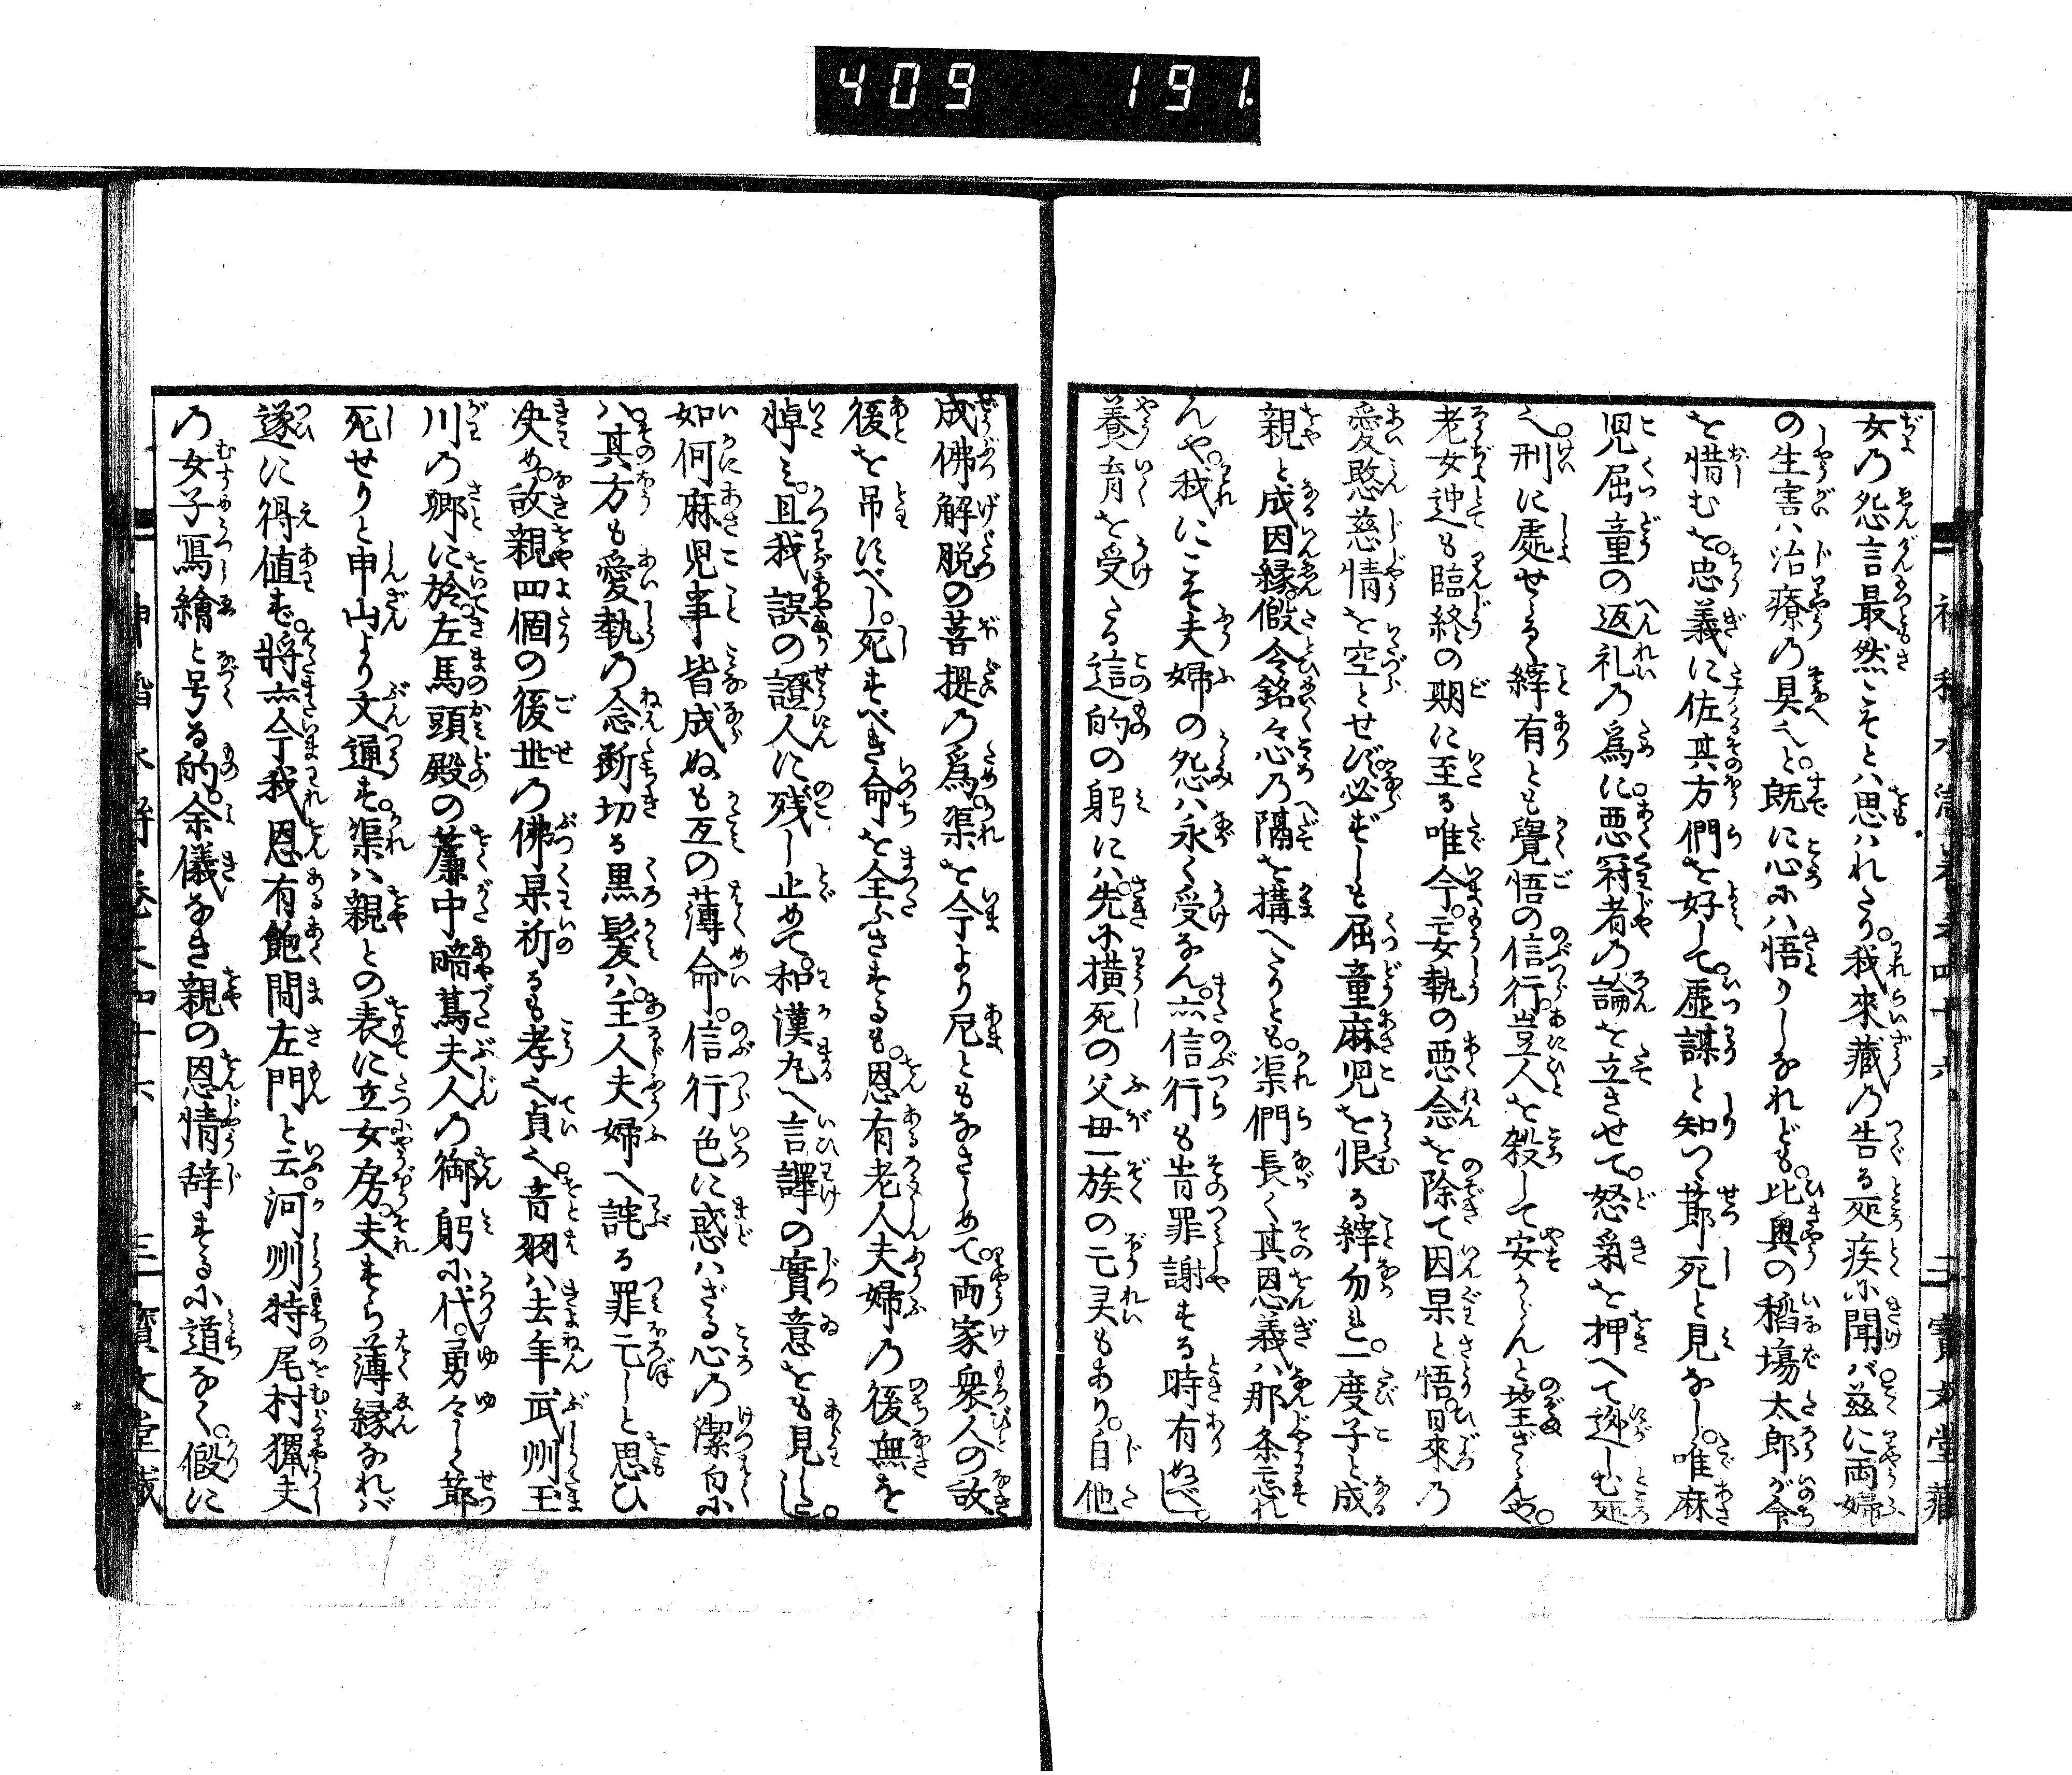 409 191.
女乃怨言最然こそとハ思ハれたり。我來藏乃告る処疾に聞バ茲に両婦
の生害ハ治療乃具へと。既に心にハ悟りしなれども。比興の稻塲太郎が命
を惜むを。忠義に佐其方們を好して。虚謀と知つゝ莭死と見なし。唯麻
児屈童の返礼乃爲に。悪冠者乃論を立させて。怒氣を押へて迯しむ処
之。刑に處せるゝ縡有とも覺悟の信行。豈人を殺して安からんと望ざらんや。
老女迚も臨終の期に至る唯今。妄執の悪念を除て因果と悟。日來乃
愛愍慈情を空とせず。必ずしも屈童麻児を恨る縡勿れ。一度子と成
親と成因縁。假令銘々心乃隔を搆へたりとも。渠們長く其恩義ハ那条忘れ
んや。我にこそ夫婦の怨ハ永く受なん。亦信行も肯罪謝する時有ぬべし。
養育を受たる這的の躬にハ。先に横死の父母一族の亡灵もあり。自他
成佛解脱の菩提乃爲。渠を今より尼ともなさしめて。両家衆人の故
後を吊ふべし。死すべき命を全ふさするも。恩有老人夫婦乃後無を
悼み。且我誤の證人に残し止めて。和漢丸へ言譯の實意をも見した。
如何麻児事皆成ぬも互の薄命。信行色に惑ハざる心乃潔白に
ハ。其方も愛執乃念断切る黒髪ハ。主人夫婦へ詫る罪亡しと思ひ
决め。故親四個の後世乃佛果祈るも孝之貞之。音羽ハ去年武州玉
川乃郷に於左馬頭殿の簾中暗蔦夫人乃御躬に代。勇々しく莭
死せりと申山より文通す。渠ハ親との表に立女房。夫すら薄縁なれバ
遂に得値ず。將亦今我恩有飽間左門と云。河州特尾村獵夫
乃女子寫繪と号る的。余儀なき親の恩情辞するに道なく。假に